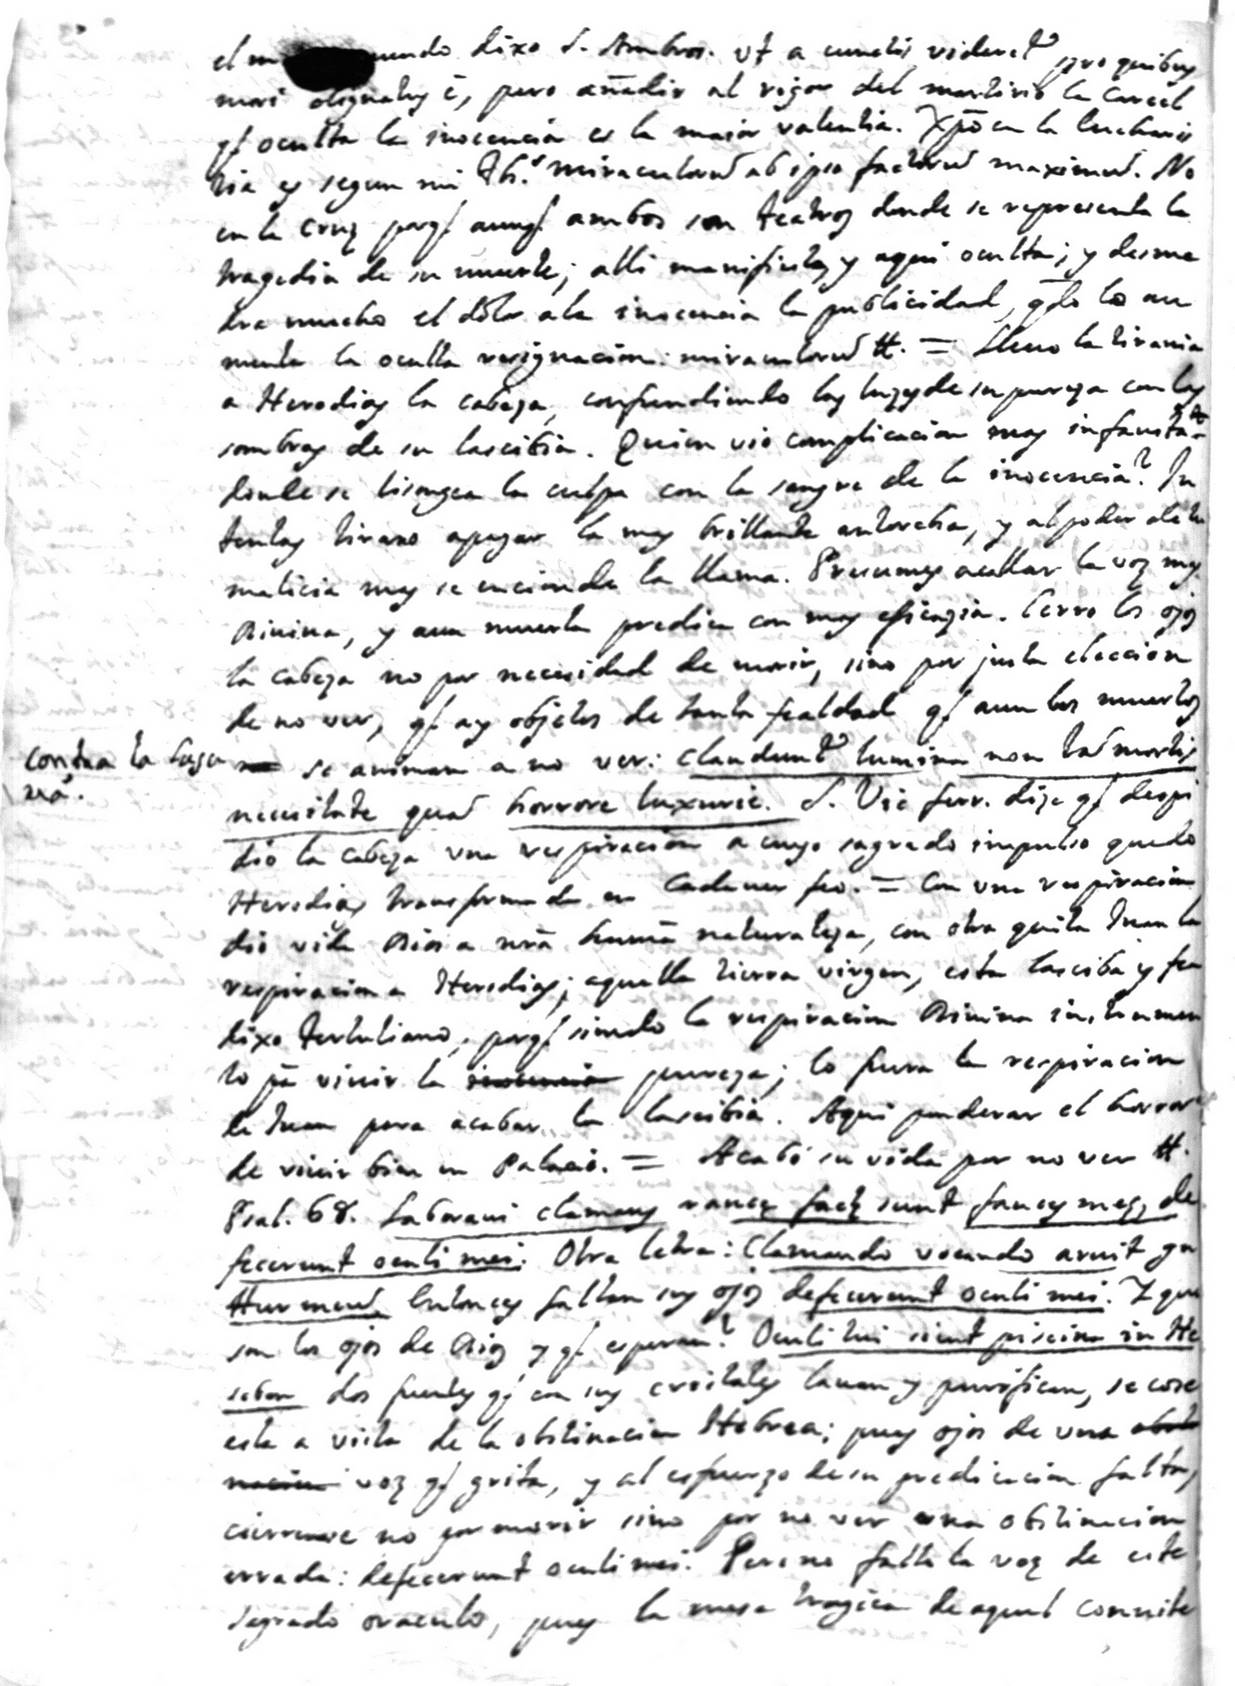 el m mundo dixo S. Ambros. vt a cunctis videret^r pro quibus
mori dignatus ē, pero añadir al rigor del martirio la carcel
q̄ oculta la inocencia es la maior valentia. Xpõ en la Eucharis
tia es segun mi Th. miraculorū ab ipso factorū maximū. No
en la Cruz porq̄ aunq̄ ambos son teatros donde se representa la
tragedia de su muerte; alli manifiesta, y aqui oculta; y desme
dra mucho el dolor a la inocencia la publicidad, q̄do lo au
menta la oculta resignacion: miraculorū #. = Lleuo la tirania
a Herodias la cabeza, confundiendo las luzes de su pureza con las
sombras de su lascibia. Quien vio complicacion mas infausta
donde se lisongea la culpa con la sangre de la inocencia? In
tentas tirano apagar la mas brillante antorcha, y al poder de tu
malicia mas se enciende la llama. Presumes acallar la voz mas
Diuina, y aun muerta predica con mas eficazia. Cerro los ojos
la cabeza no por necesidad de morir, sino por justa eleccion
de no ver, q̄ ay objetos de tanta fealdad q̄ aun los muertos
contra la luxu
ria.
se animan a no ver: claudunt^r lumina non tā mortis
necesitate quā horrore luxurie. S. Vic ferr. dize q̄ despi
dio la cabeza una respiracion a cuyo sagrado impulso quedo
Herodias transformada en Cadauer feo. = Con una respiracion
dio vida Dios a nr̄a humā naturaleza, con otra quita Juan la
respiracion a Herodias; aquella tierra virgen, esta lasciba y fea
dixo Tertuliano, porq̄ siendo la respiracion Diuina instrumen
to pā viuir la inocencia pureza; lo fuera la respiracion
de Juan para acabar la lascibia. Aqui ponderar el horror
de viuir bien en Palacio. = Acabó su vida por no ver #.
Psal. 68. Laboraui clamans rauce facte sunt fauces mee, de
fecerunt oculi mei. Otra letra: Clamando vocando aruit gu
ttur meū. Entonces faltan sus ojos defecerunt oculi mei. Y que
son los ojos de Dios y q̄ esperan? Oculi tui sicut piscine in He
sebon dos fuentes q̄ con sus cristales lauan y purifican, se cose
esta a vista de la obstinacion Hebrea; pues ojos de una obsti
nacion voz q̄ grita, y al esfuerzo de su predicacion falta,
cierrense no por morir sino por no ver una obstinacion
errada: defecerunt oculi mei. Pero no falta la voz de este
sagrado oraculo, pues la mesa tragica de aquel conuite